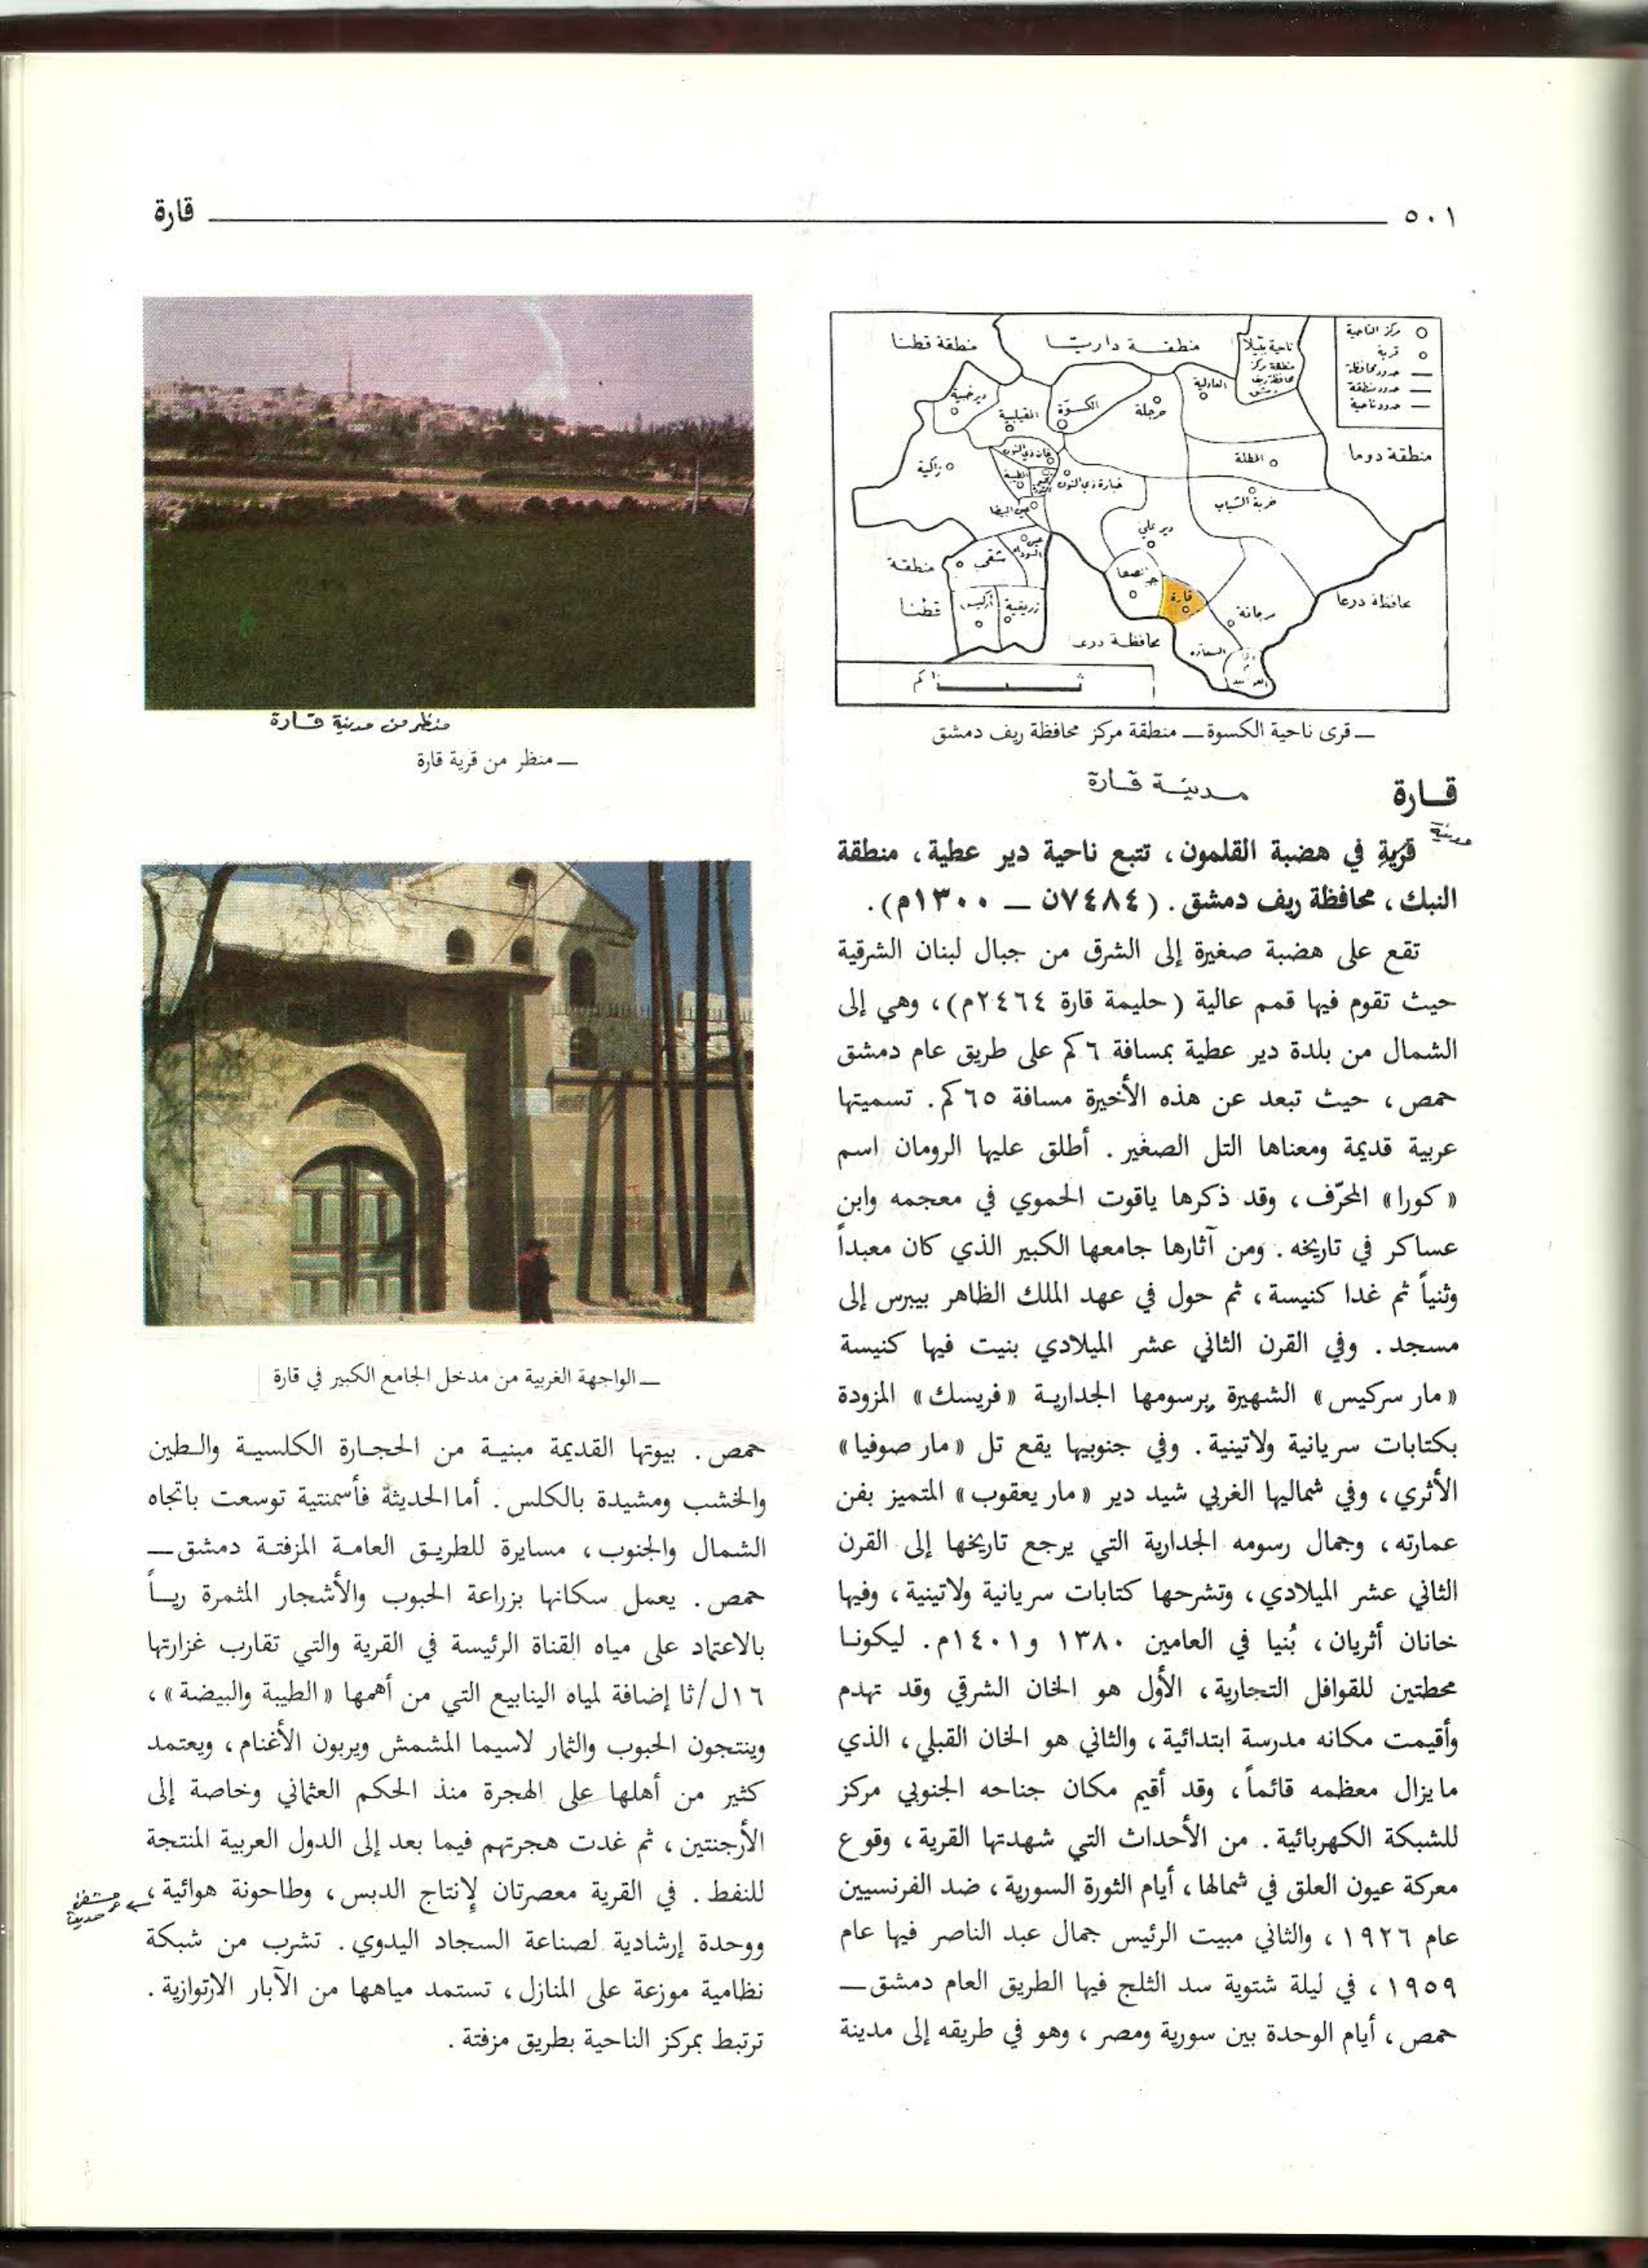 ٥٠١
قارة
مركز الناحية
قرية
حدود محافظة
حدود منطقة
حدود ناحية
منطقة قطنا
منطقة داريّا
ناحية ببيلا
منطقة مركز
محافظة ريف
دمشق
ديرخبية
المقيلبية
الكسوة
مرجلة
العادلية
منطقة دوما
زاكية
الطيبة
خيارة دي النون
المطلة
خربة الشياب
دير علي
منطقة
قطنا
شقحب
عين
السودا
أركيس
زريقية
قارة
مرجانة
محافظة درعا
محافظة درعا
كم
ــ قرى ناحية الكسوة ــ منطقة مركز محافظة ريف دمشق
قــارة
مدينة قارة
مدينة
قرية في هضبة القلمون، تتبع ناحية دير عطية، منطقة
النبك، محافظة ريف دمشق. (٧٤٨٤ن ــ ١٣٠٠م).
تقع على هضبة صغيرة إلى الشرق من جبال لبنان الشرقية
حيث تقوم فيها قمم عالية (حليمة قارة ٢٤٦٤م)، وهي إلى
الشمال من بلدة دير عطية بمسافة ٦كم على طريق عام دمشق
حمص، حيث تبعد عن هذه الأخيرة مسافة ٦٥كم. تسميتها
عربية قديمة ومعناها التل الصغير. أطلق عليها الرومان اسم
«كورا» المحرّف، وقد ذكرها ياقوت الحموي في معجمه وابن
عساكر في تاريخه. ومن آثارها جامعها الكبير الذي كان معبداً
وثنياً ثم غدا كنيسة، ثم حول في عهد الملك الظاهر بيبرس إلى
مسجد. وفي القرن الثاني عشر الميلادي بنيت فيها كنيسة
«مار سركيس» الشهيرة برسومها الجدارية «فريسك» المزودة
بكتابات سريانية ولاتينية. وفي جنوبيها يقع تل «مار صوفيا»
الأثري، وفي شماليها الغربي شيد دير «مار يعقوب» المتميز بفن
عمارته، وجمال رسومه الجدارية التي يرجع تاريخها إلى القرن
الثاني عشر الميلادي، وتشرحها كتابات سريانية ولاتينية، وفيها
خانان أثريان، بُنيا في العامين ١٣٨٠ و١٤٠١م. ليكونا
محطتين للقوافل التجارية، الأول هو الخان الشرقي وقد تهدم
وأقيمت مكانه مدرسة ابتدائية، والثاني هو الخان القبلي، الذي
مايزال معظمه قائماً، وقد أقيم مكان جناحه الجنوبي مركز
للشبكة الكهربائية. من الأحداث التي شهدتها القرية، وقوع
معركة عيون العلق في شمالها، أيام الثورة السورية، ضد الفرنسيين
عام ١٩٢٦، والثاني مبيت الرئيس جمال عبد الناصر فيها عام
١٩٥٩، في ليلة شتوية سد الثلج فيها الطريق العام دمشق ــ
حمص، أيام الوحدة بين سورية ومصر، وهو في طريقه إلى مدينة
منظر من مدينة قارة
ــ منظر من قرية قارة
ــ الواجهة الغربية من مدخل الجامع الكبير في قارة
حمص. بيوتها القديمة مبنية من الحجارة الكلسية والطين
والخشب ومشيدة بالكلس. أما الحديثة فأسمنتية توسعت باتجاه
الشمال والجنوب، مسايرة للطريق العامة المزفتة دمشق ــ
حمص. يعمل سكانها بزراعة الحبوب والأشجار المثمرة رياً
بالاعتماد على مياه القناة الرئيسة في القرية والتي تقارب غزارتها
١٦ل/ثا إضافة لمياه الينابيع التي من أهمها «الطيبة والبيضة»،
وينتجون الحبوب والثمار لاسيما المشمش ويربون الأغنام، ويعتمد
كثير من أهلها على الهجرة منذ الحكم العثماني وخاصة إلى
الأرجنتين، ثم غدت هجرتهم فيما بعد إلى الدول العربية المنتجة
للنفط. في القرية معصرتان لإنتاج الدبس، وطاحونة هوائية،
ووحدة إرشادية لصناعة السجاد اليدوي. تشرب من شبكة
نظامية موزعة على المنازل، تستمد مياهها من الآبار الارتوازية.
ترتبط بمركز الناحية بطريق مزفتة.